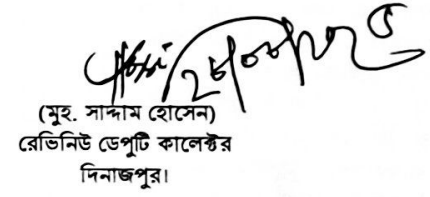 (মুহ. সাদ্দাম হোসেন)
রেভিনিউ ডেপুটি কালেক্টর
দিনাজপুর।